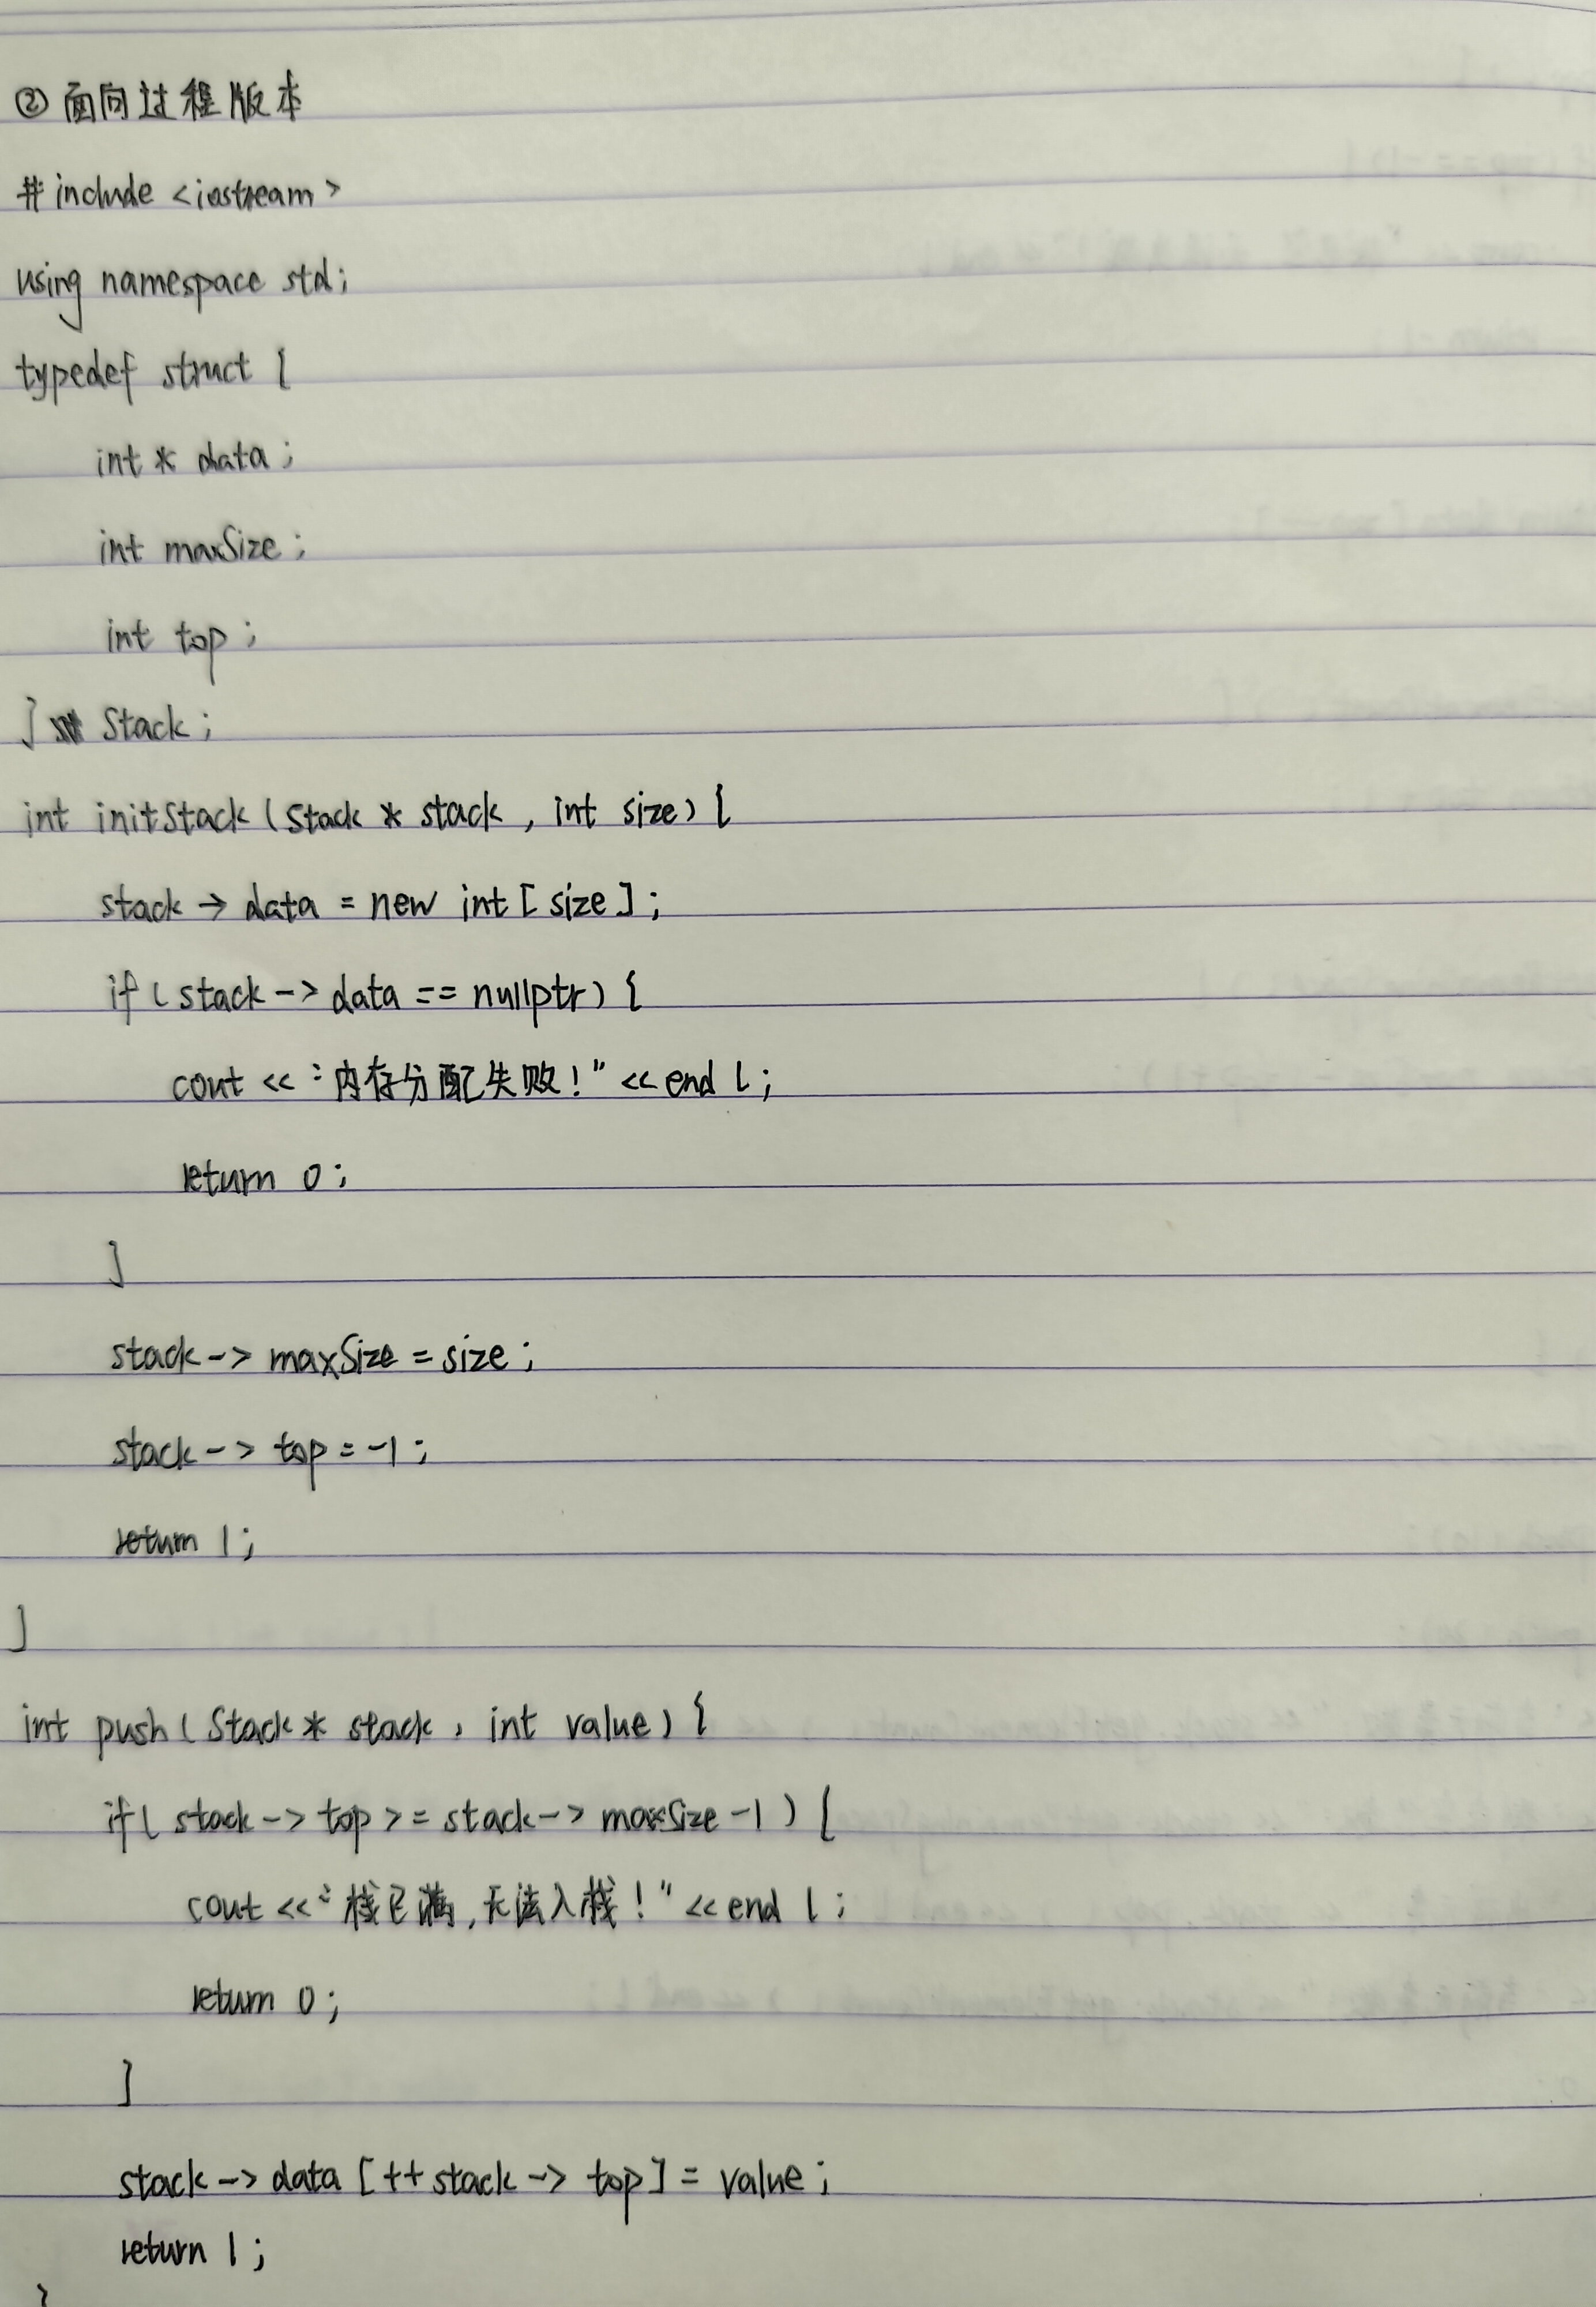 ② 面向过程版本
#include <iostream>
using namespace std;
typedef struct {
int * data;
int maxSize;
int top;
} Stack;
int initStack (Stack * stack, int size) {
stack -> data = new int [size];
if (stack -> data == nullptr) {
cout << "内存分配失败!" << endl;
return 0;
}
stack -> maxSize = size;
stack -> top = -1;
return 1;
}
int push (Stack * stack, int value) {
if (stack -> top >= stack -> maxSize -1) {
cout << "栈已满,无法入栈!" << endl;
return 0;
}
stack -> data [++ stack -> top] = value;
return 1;
}